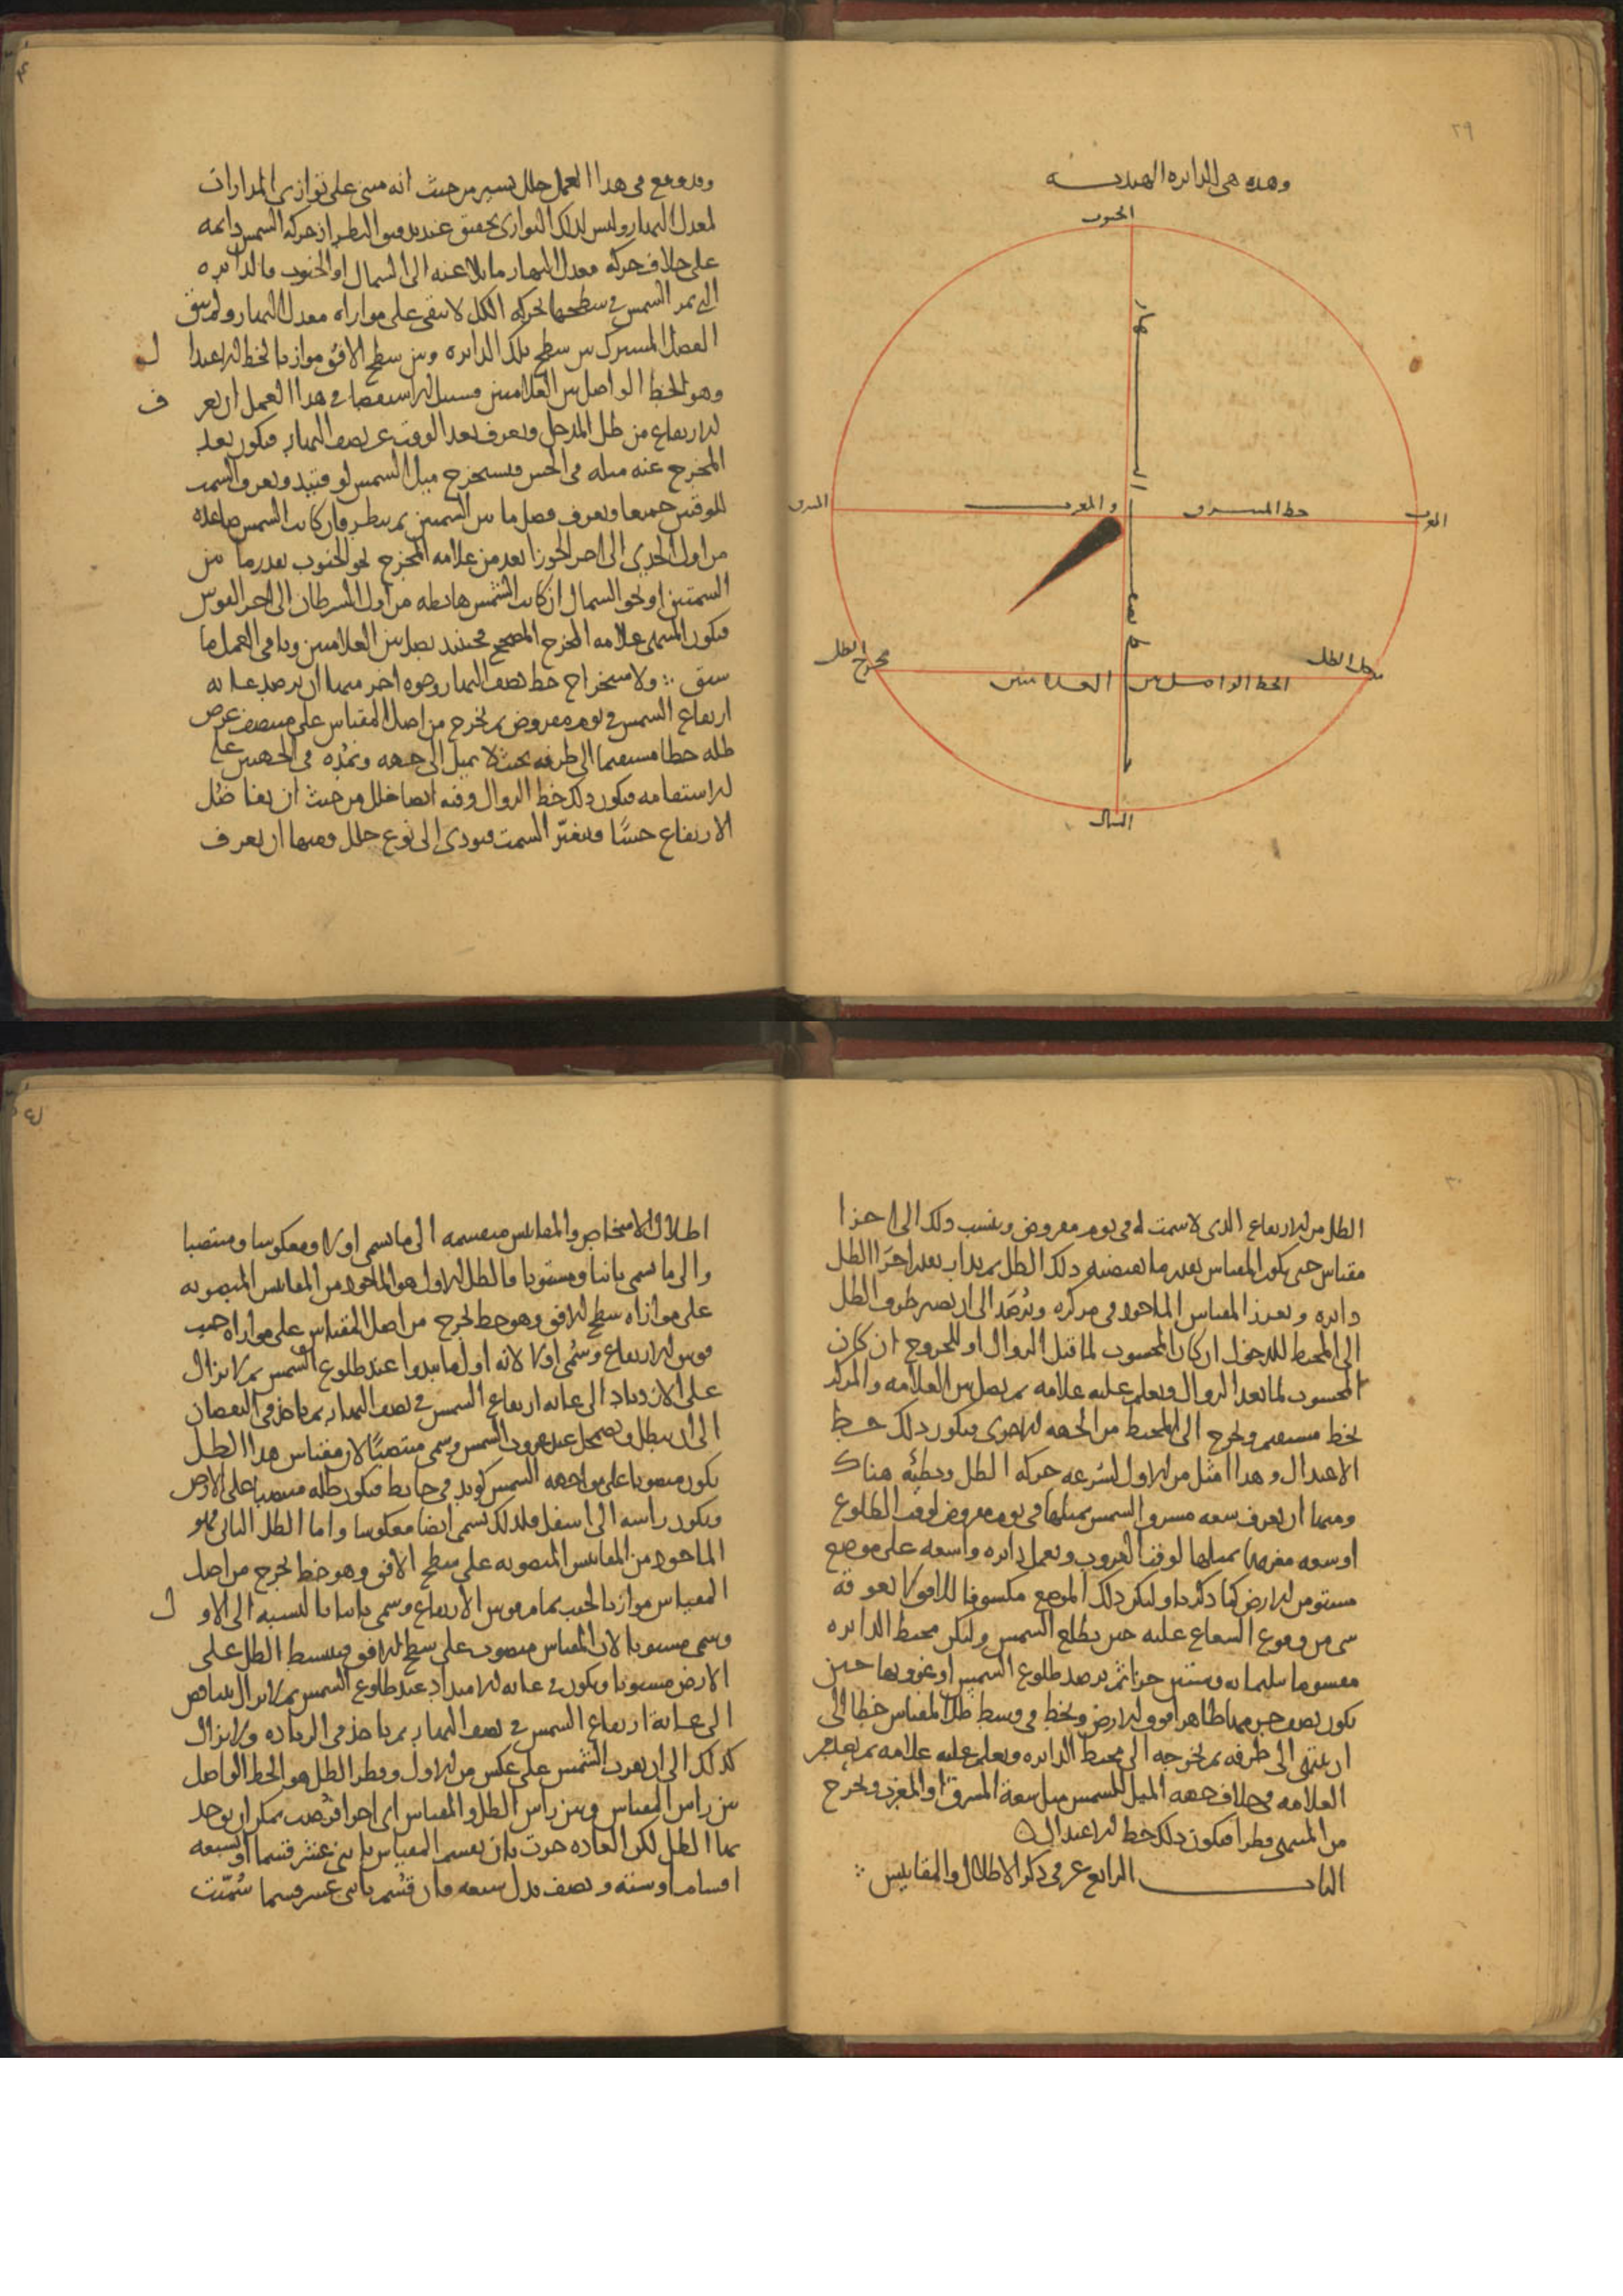 ٢٩
وهذه هي الدايره الهنديه
الجنوب
خط نصف النهار
المشرق
خط المشرق والمغرب
المغرب
مخرج الظل
مدخل الظل
الخط الواصل بين العلامتين
الشمال
وقد وقع في هذا العمل خلل يسير من حيث انه مبنى على توازى المدارات
لمعدل النهار وليس لذلك التوازى تحقق عند تدقيق النظر اذ حركه الشمس دايمه
على خلاف حركه معدل النهار مايلا عنه الى الشمال او الجنوب فالدايره
التى تمر الشمس في سطحها بحركه الكل لا تبقى على موازاه معدل النهار ولم يبق
الفصل المشترك بين سطح تلك الدايره وبين سطح الافق موازيا لخط الاعتدا ل
وهو الخط الواصل بين العلامتين فسبيل الاستقصا في هذا العمل ان يعر ف
الارتفاع من ظل المدخل ويعرف بعد الوقت عن نصف النهار فيكون بعد
المخرج عنه مثله في الحس فيستخرج ميل الشمس لوقتيه ويعرف السمت
للوقتين جميعا ويعرف فضل ما بين السمتين ثم ينظر فان كانت الشمس صاعده
من اول الجدى الى اخر الجوزا بعد من علامه المخرج نحو الجنوب بقدر ما بين
السمتين او نحو الشمال ان كانت الشمس هابطه من اول السرطان الى اخر القوس
فيكون المنتهى علامه المخرج المصحح فحينئذ يصل بين العلامتين وباقى العمل كما
سبق ∴ ولاستخراج خط نصف النهار وجوه اخر منها ان يرصد غايه
ارتفاع الشمس في يوم مفروض ثم يخرج من اصل المقياس على منتصف عرض
ظله خطا مستقيما الى طرفه بحيث لا يميل الى جهه ونمده في الجهتين على
الاستقامه فيكون ذلك خط الزوال وفيه ايضا خلل من حيث ان يتفاضل
الارتفاع حسًا فيتغيّر السمت فيودى الى نوع خلل ومنها ان يعرف
٣٠
الظل من الارتفاع الذى لا سمت له في يوم مفروض وينسب ذلك الى اجزا
مقياس حتى يكون المقياس بقدر ما يقتضيه ذلك الظل ثم يدار ببعد اجزا الظل
دايره ويغرز المقياس الماخوذ في مركزه ويُرصَد الى ان يصير طرف الظل
الى المحيط للدخول ان كان المحسوب لما قبل الزوال او للخروج ان كان
المحسوب لما بعد الزوال ويعلم عليه علامه ثم يصل بين العلامه والمركز
بخط مستقيم ويخرج الى المحيط من الجهه الاخرى فيكون ذلك خط
الاعتدال وهذا امثل من الاول لسُرعه حركه الظل وبطئه هناك
ومنها ان يعرف سعه مشرق الشمس بميلها في يوم مفروض لوقت الطلوع
او سعه مغربها بميلها لوقت الغروب ويعمل دايره واسعه على موضع
مستو من الارض كما ذكرنا وليكن ذلك الموضع مكشوفا للافق لا يعوقه
شى من وقوع الشعاع عليه حين يطلع الشمس وليكن محيط الدايره
مقسوما بثلثمايه وستين جزا ثم يرصد طلوع الشمس او غروبها حين
يكون نصف جرمها ظاهرا فوق الارض ويخط في وسط ظل المقياس خطا الى
ان ينتهى الى طرفه ثم يخرجه الى محيط الدايره ويعلم عليه علامه ثم يعد من
العلامه في خلاف جهه الميل للشمس مثل سعة المشرق او المغرب ويخرج
من المنتهى قطرا فيكون ذلك خط الاعتدال
الباب الرابع عشر في ذكر الاظلال والمقاييس ∴
اظلال الاشخاص والمقاييس منقسمه الى ما تسمى اولا ومعكوسا ومنتصبا
والى ما تسمى ثانيا ومستويا فالظل الاول هو الماخوذ من المقاييس المنصوبه
على موازاه سطح الافق وهو خط يخرج من اصل المقياس على موازاه جيب
قوس الارتفاع وسُمى اولا لانه اول ما يبدوا عند طلوع الشمس ثم لا يزال
على الازدياد الى غايه ارتفاع الشمس في نصف النهار ثم ياخذ في النقصان
الى ان يبطل ويضمحل عند غروب الشمس وسمى منتصبًا لان مقياس هذا الظل
يكون منصوبا على مواجهه الشمس كوتد في حايط فيكون ظله منتصبا على الارض
ويكون راسه الى اسفل فلذلك تسمى ايضا معكوسا واما الظل الثانى فهو
الماخوذ من المقاييس المنصوبه على سطح الافق وهو خط يخرج من اصل
المقياس موازيا لجيب تمام قوس الارتفاع وسمى ثانيا بالنسبه الى الاو ل
وسمى مستويا لان المقياس منصوب على سطح الافق فينبسط الظل على
الارض مستويا ويكون في غايه الامتداد عند طلوع الشمس ثم لا يزال يتناقص
الى غاية ارتفاع الشمس في نصف النهار ثم ياخذ في الزياده ولا يزال
كذلك الى ان يغرب الشمس على عكس من الاول وقطر الظل هو الخط الواصل
بين راس المقياس وبين راس الظل والمقياس اى اجزا فُرضت يمكن ان يوجد
بها الظل لكن العاده جرت بان يقسم المقياس باثنى عشر قسما او بسبعه
اقسام او سته ونصف بدل سبعه فان قُسّم باثنى عشر قسما سُمّيت